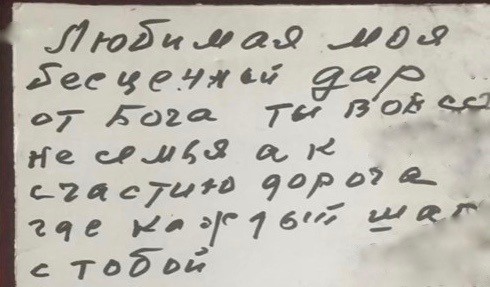 Любимая моя
бесценный дар
от Бога ты вовсе
не семья а к
счастию дорога
где каждый шаг
с тобой